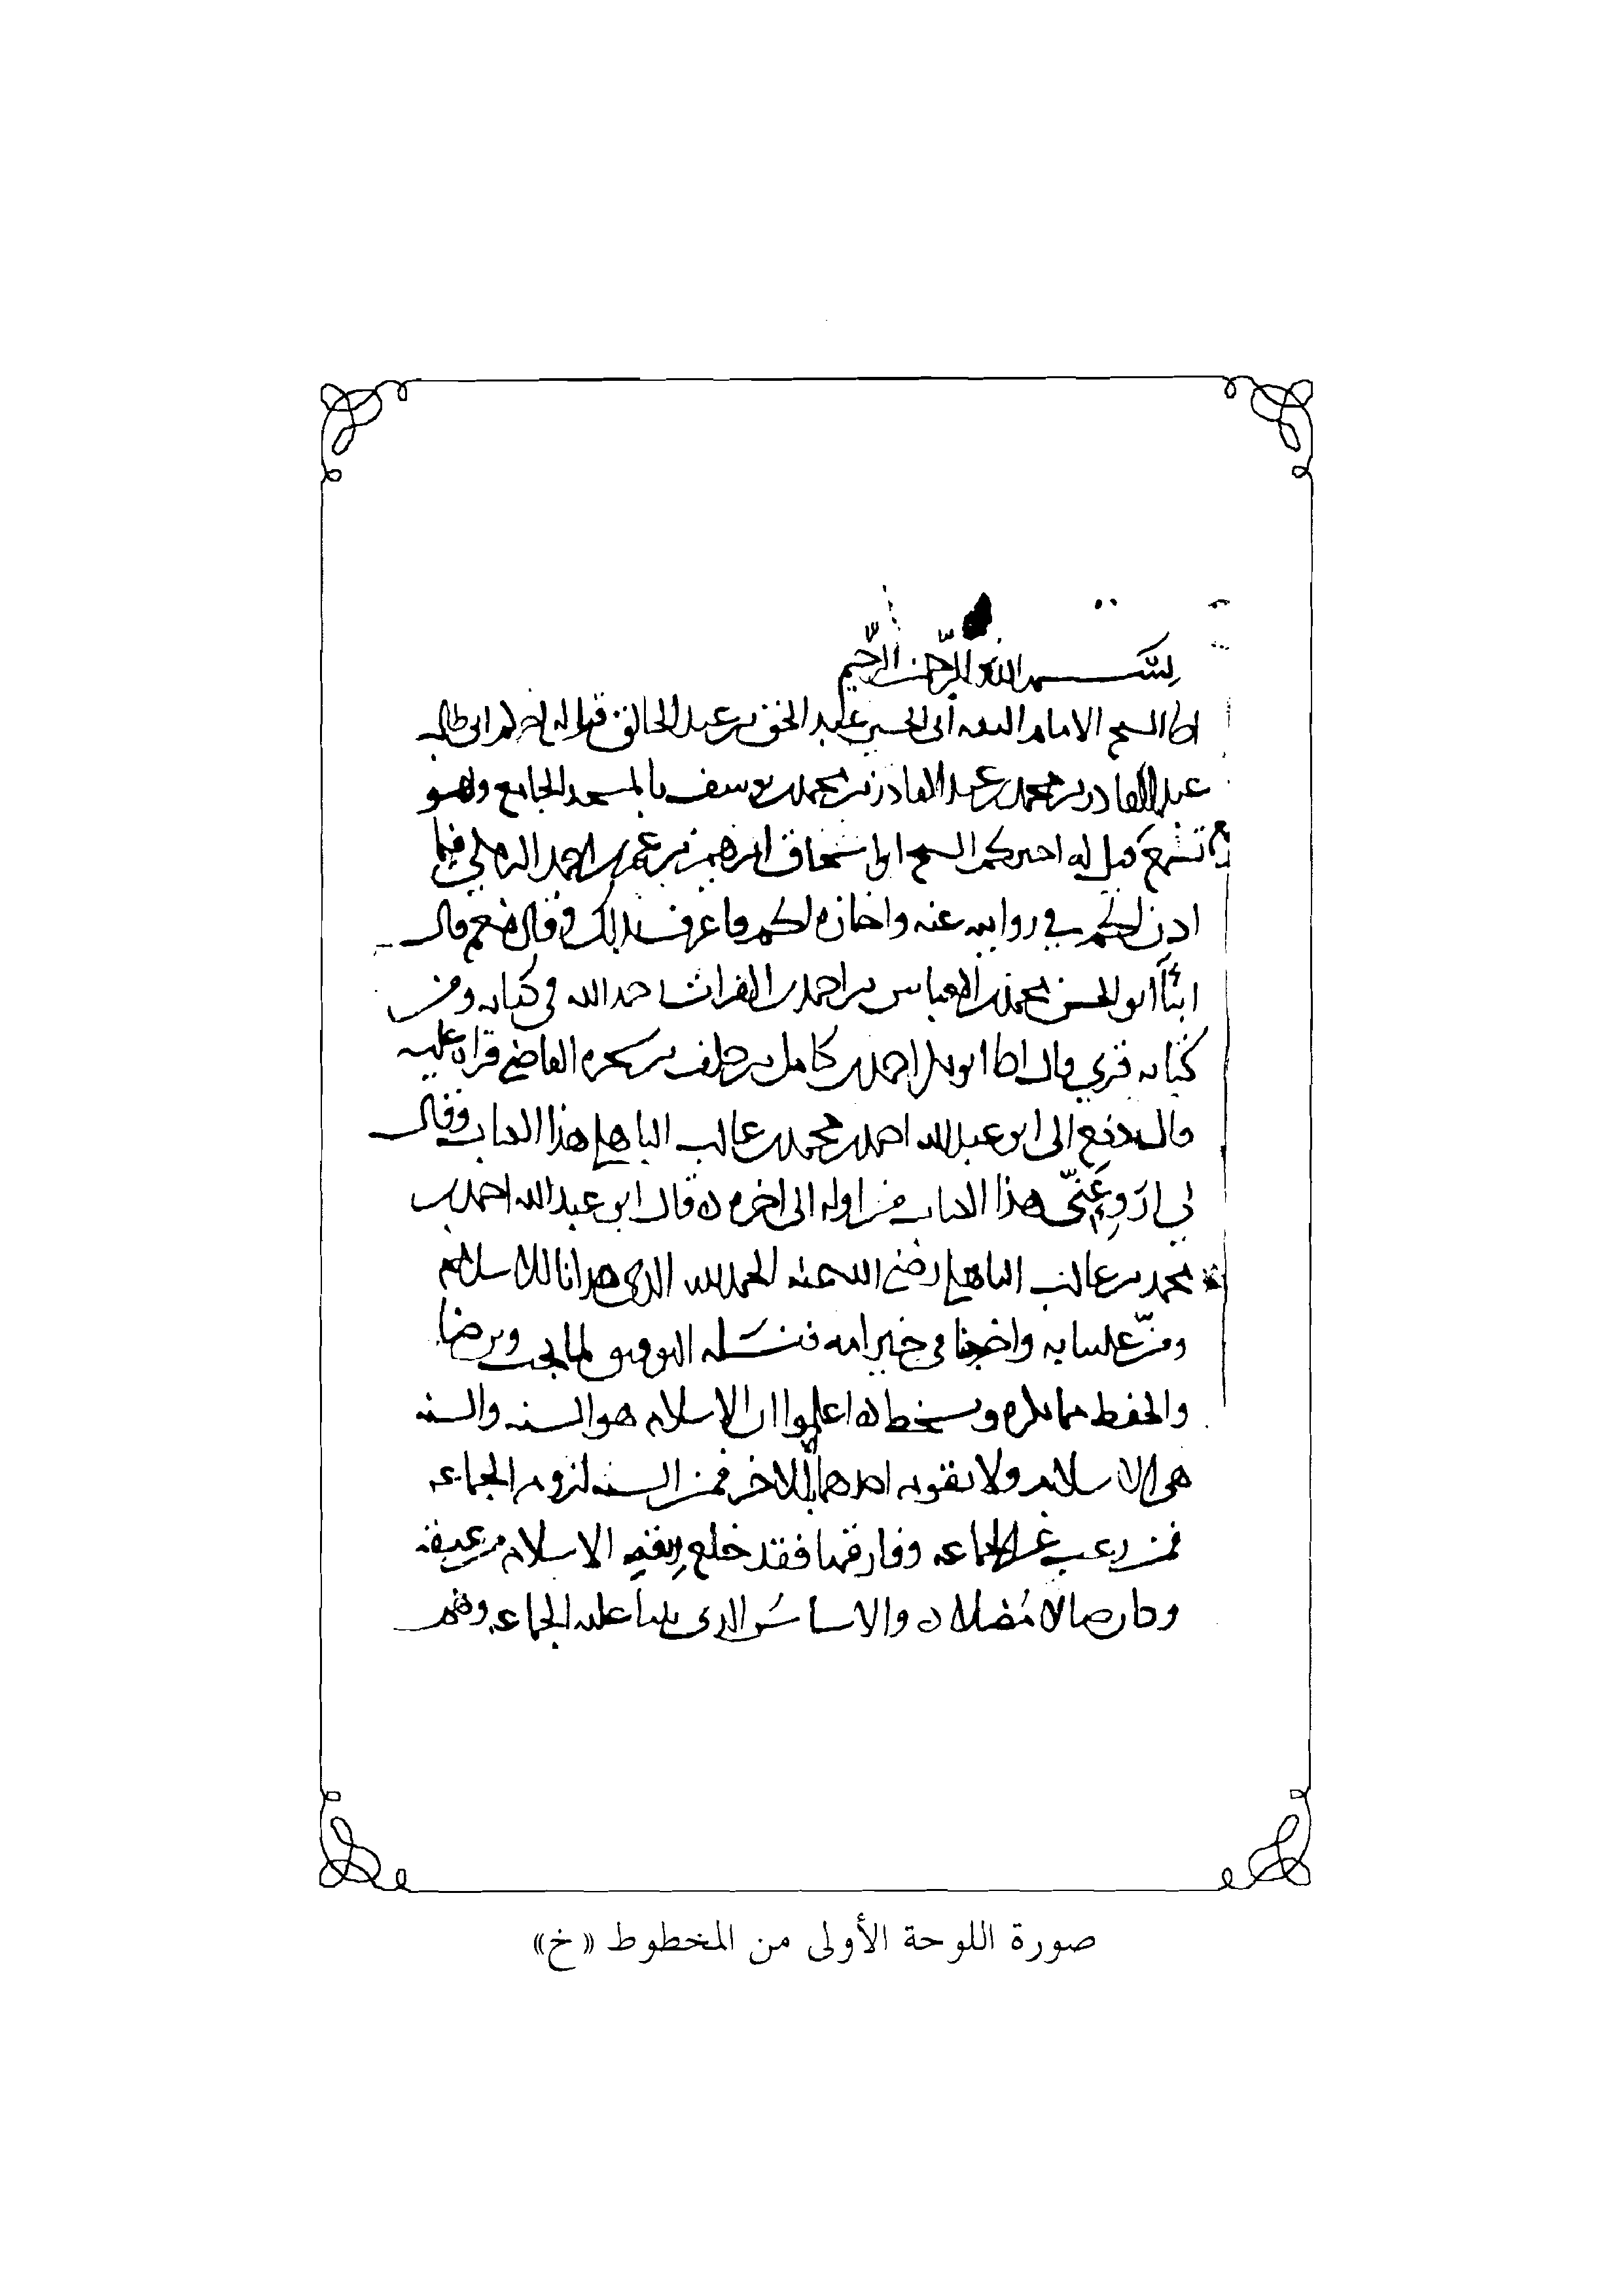 بسم الله الرحمن الرحيم
انا السح الامام الفقيه أبي الحسين عبد الحق بن عبد الخالق قيل له أخبركم ابي طالب
عبد القادر بن محمد بن عبد القادر بن محمد بن يوسف بالمسجد الجامع وهو
تسمع قيل له اخبركم الشيخ ابو اسحاق ابرهيم بن عمر بن احمد البرمكي فيما
اذن لكم في روايته عنه واجازه لكم فاعرف بذلك وقال نعم قال
انبأ ابو الحسن محمد بن العباس بن احمد بن الفرات رحمه الله في كتابه ومن
كتابه قري قال انا ابو بكر احمد بن كامل بن خلف بن شجره القاضي قراه عليه
قال دفع الى ابو عبد الله احمد بن محمد بن غالب الباهلي هذا الكتاب وقال
لي اروِ عَنّي هذا الكتاب من اوله الى اخره ه قال ابو عبد الله احمد بن
محمد بن غالب الباهلي رضي الله عنه الحمد لله الذي هدانا للاسلام
ومنّ علينا به واخرجنا في خير امه فنسَله التوفيق لما يحب ويرضا
والحفظ مما يكره ويسخط ه اعلموا ان الاسلام هو السنه والسنه
هي الاسلام ولا يقوم احدهما الا بالاخر فمن السنه لزوم الجماعه
فمن رغب عن الجماعه وفارقها فقد خلع ربقه الاسلام من عنقه
وكان ضالا مُضلا ه والاساسُ الذي بينا عليه الجماعه وهم
صورة اللوحة الأولى من المخطوط «خ»